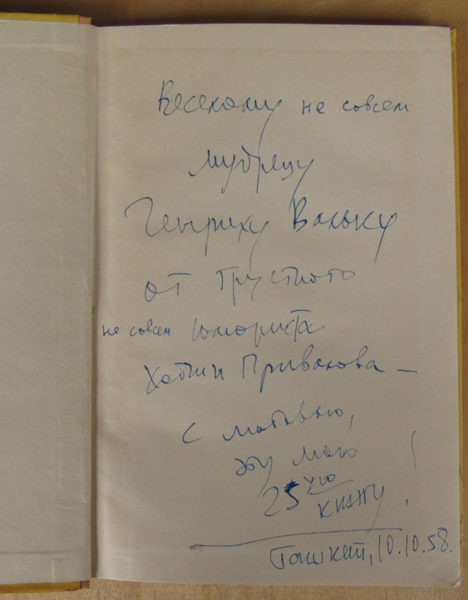 Веселому не совсем
мудрецу
Генриху Вальку
от грустного
не совсем юмориста
Ходжи Привалова —
с любовью,
эту мою
25ую
книгу!
Ташкент, 10.10.58.